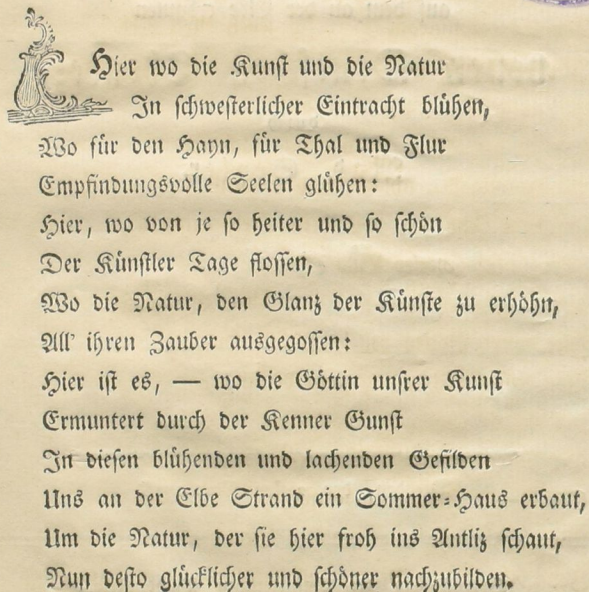 Hier wo die Kunst und die Natur
In schwesterlicher Eintracht blühen,
Wo für den Hayn, für Thal und Flur
Empfindungsvolle Seelen glühen:
Hier, wo von je so heiter und so schön
Der Künstler Tage flossen,
Wo die Natur, den Glanz der Künste zu erhöhn,
All' ihren Zauber ausgegossen:
Hier ist es, — wo die Göttin unsrer Kunst
Ermuntert durch der Kenner Gunst
In diesen blühenden und lachenden Gefilden
Uns an der Elbe Strand ein Sommer-Haus erbaut,
Um die Natur, der sie hier froh ins Antliz schaut,
Nun desto glücklicher und schöner nachzubilden.